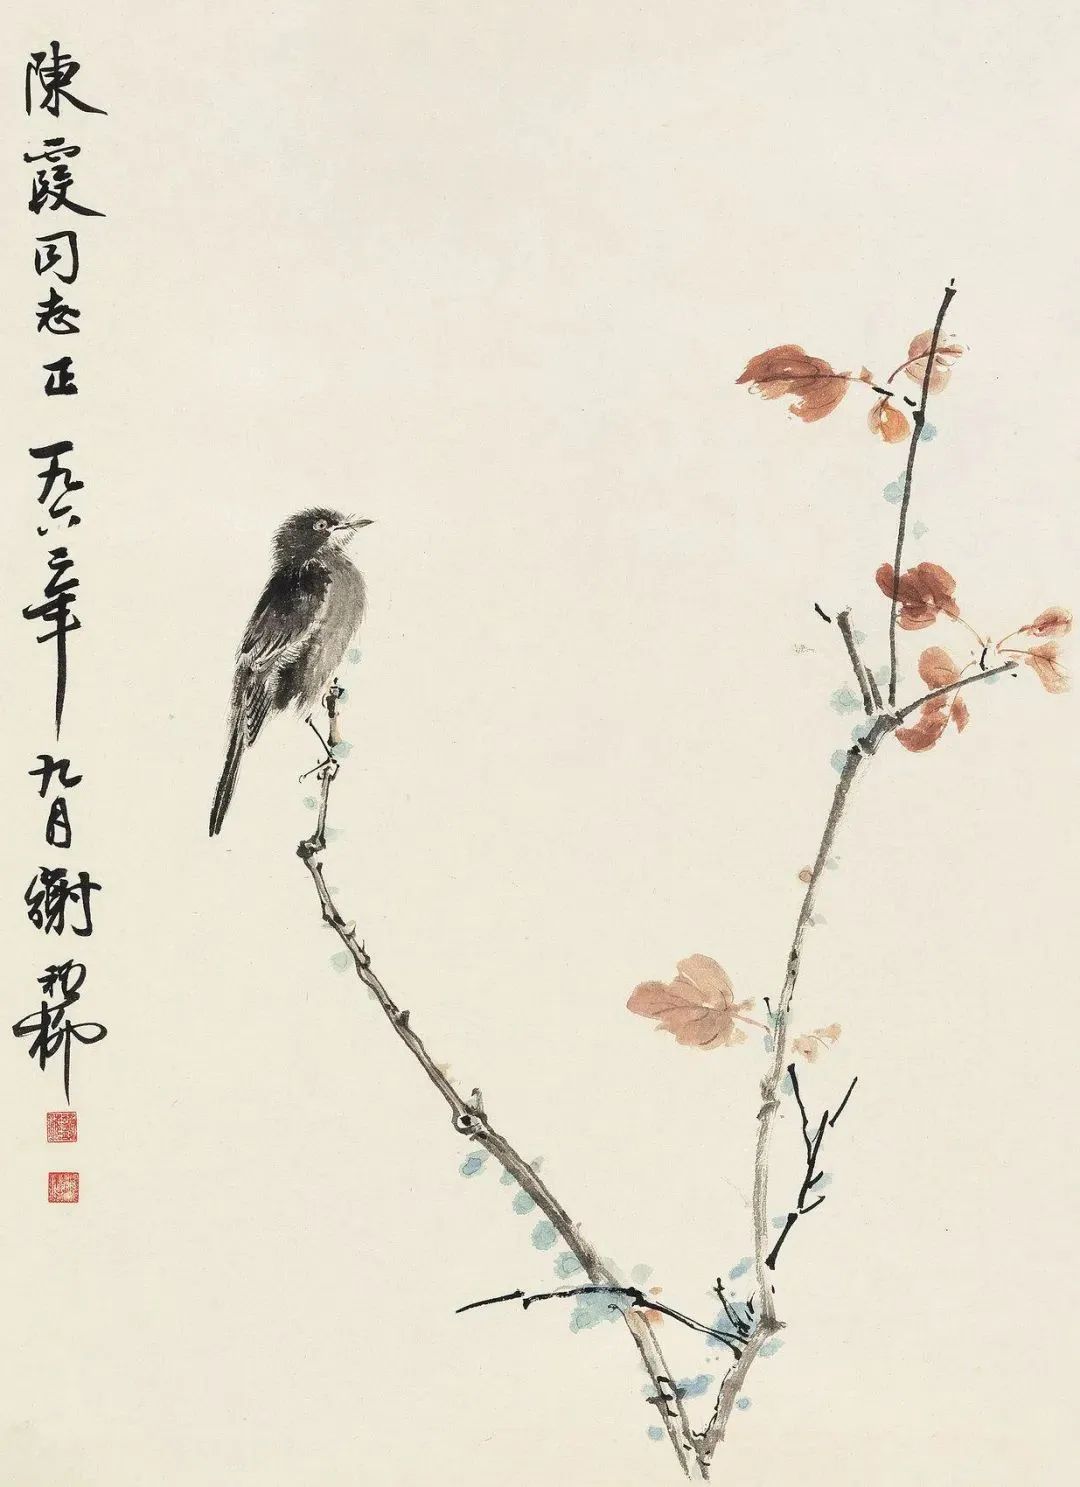 陳霞同志正 一九六三年九月 謝稚柳